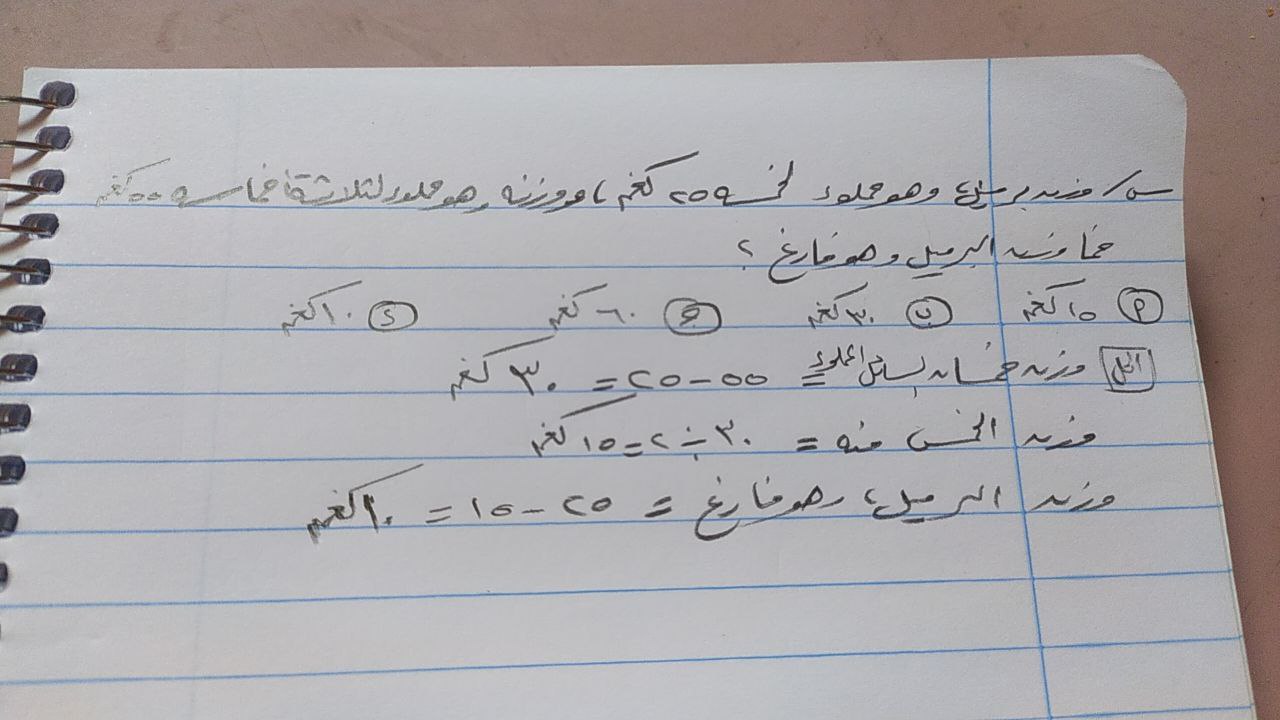 س/ وزن برميل، وهو مملوء لخمسه ٢٥ كغم، ووزنه وهو مملوء لثلاثة أخماسه ٥٥ كغم
فما وزن البرميل وهو فارغ ؟
أ ١٥ كغم ب ٣٠ كغم ج ٦٠ كغم د ١٠ كغم
الحل وزن خمسان السائل المملوء = ٥٥ - ٢٥ = ٣٠ كغم
وزن الخمس منه = ٣٠ ÷ ٢ = ١٥ كغم
وزن البرميل، وهو فارغ = ٢٥ - ١٥ = ١٠ كغم